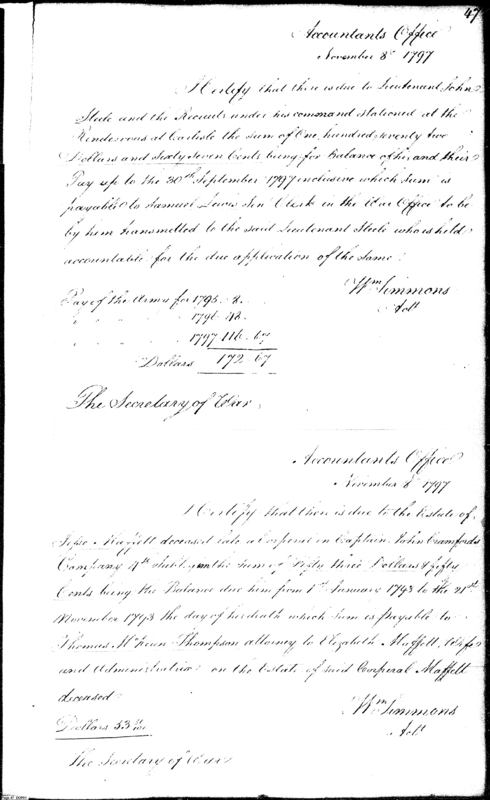 47
Accountants Office
November 8th 1797
I Certify that there is due to Lieutenant John
Steele and the Recruits under his command stationed at the
Rendezvous at Carlisle the sum of One hundred seventy two
Dollars and sixty seven Cents being for Balance of his and their
Pay up to the 30th September 1797 inclusive which sum is
payable to Samuel Lewis Senr Clerk in the War Office to be
by him transmitted to the said Lieutenant Steele who is held
accountable for the due application of the same.
Wm Simmons
Actt
Pay of the Army for 1795. 8.
" " " 1796. 48.
" " " 1797 116. 67
Dollars 172. 67
The Secretary of War.
Accountants Office
November 8 1797
I Certify that there is due to the Estate of
Maffett deceased late a Corporal in Captain John Crawfords
Company 4th Sub Legion the sum of Fifty three Dollars & fifty
Cents being the Balance due him from 1st January 1793 to the 21st
November 1793 the day of his death which sum is payable to
Thomas McKean Thompson attorney to Elizabeth Maffett
and Administratrix on the Estate of said Corporal Maffett
deceased
Wm Simmons
Actt
Dollars 53 50/100
The Secretary of War